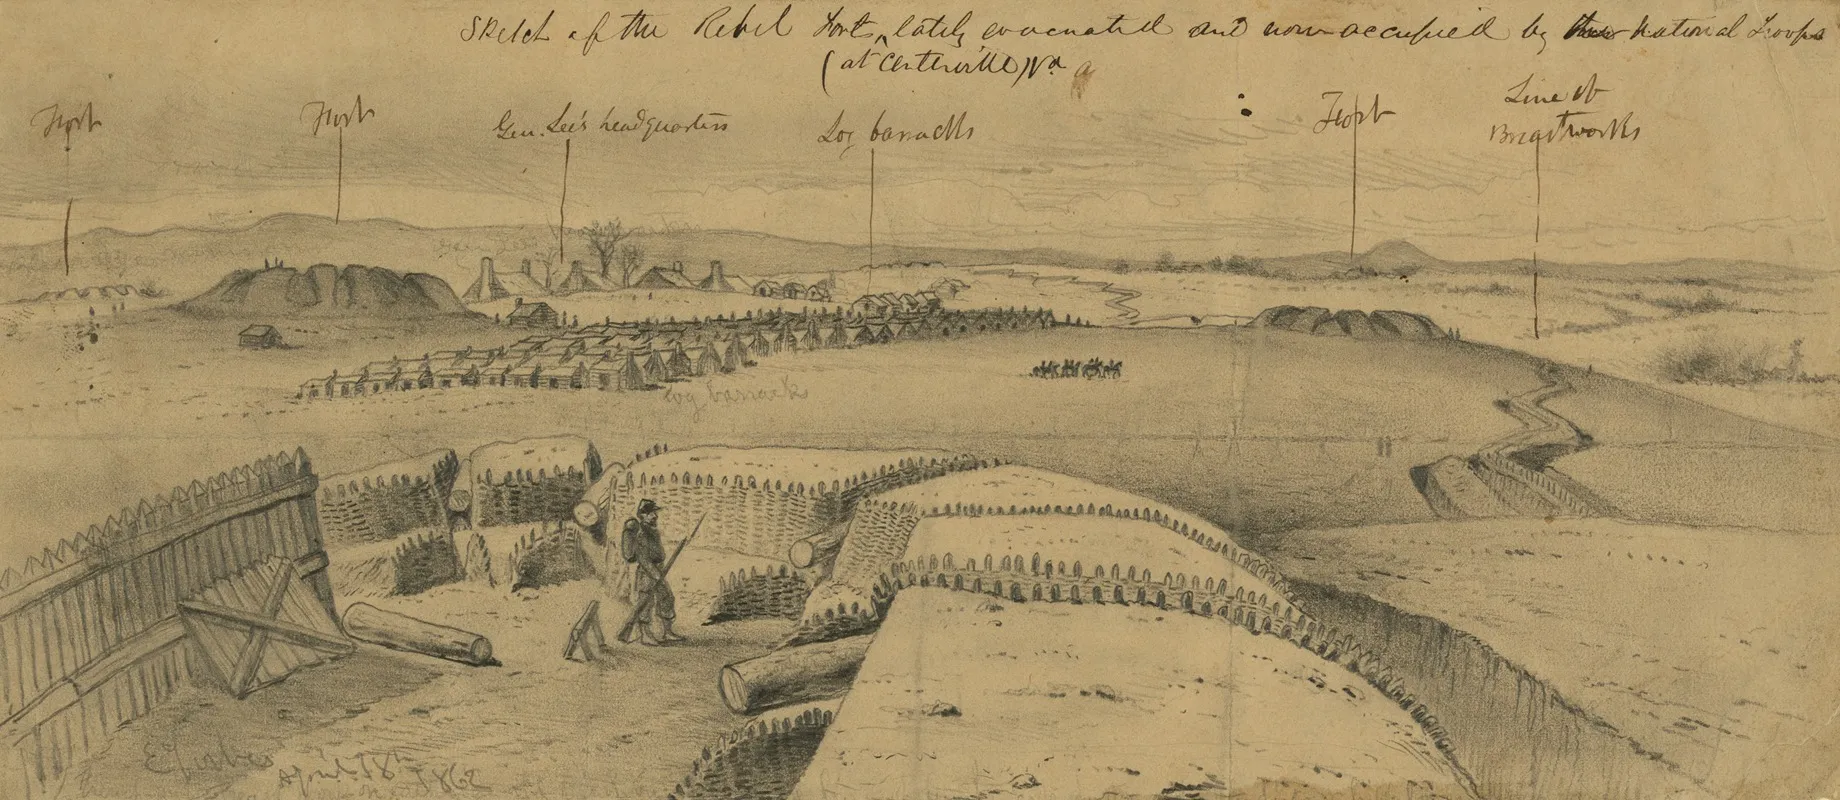 Sketch of the Rebel Fort, lately evacuated and now occupied by National Troops
(at Centerville) Va
Fort
Fort
Gen. Lee's headquarters
Log barracks
Fort
Line of
Breastworks
log barrack
E Forbes
April 18th
1862